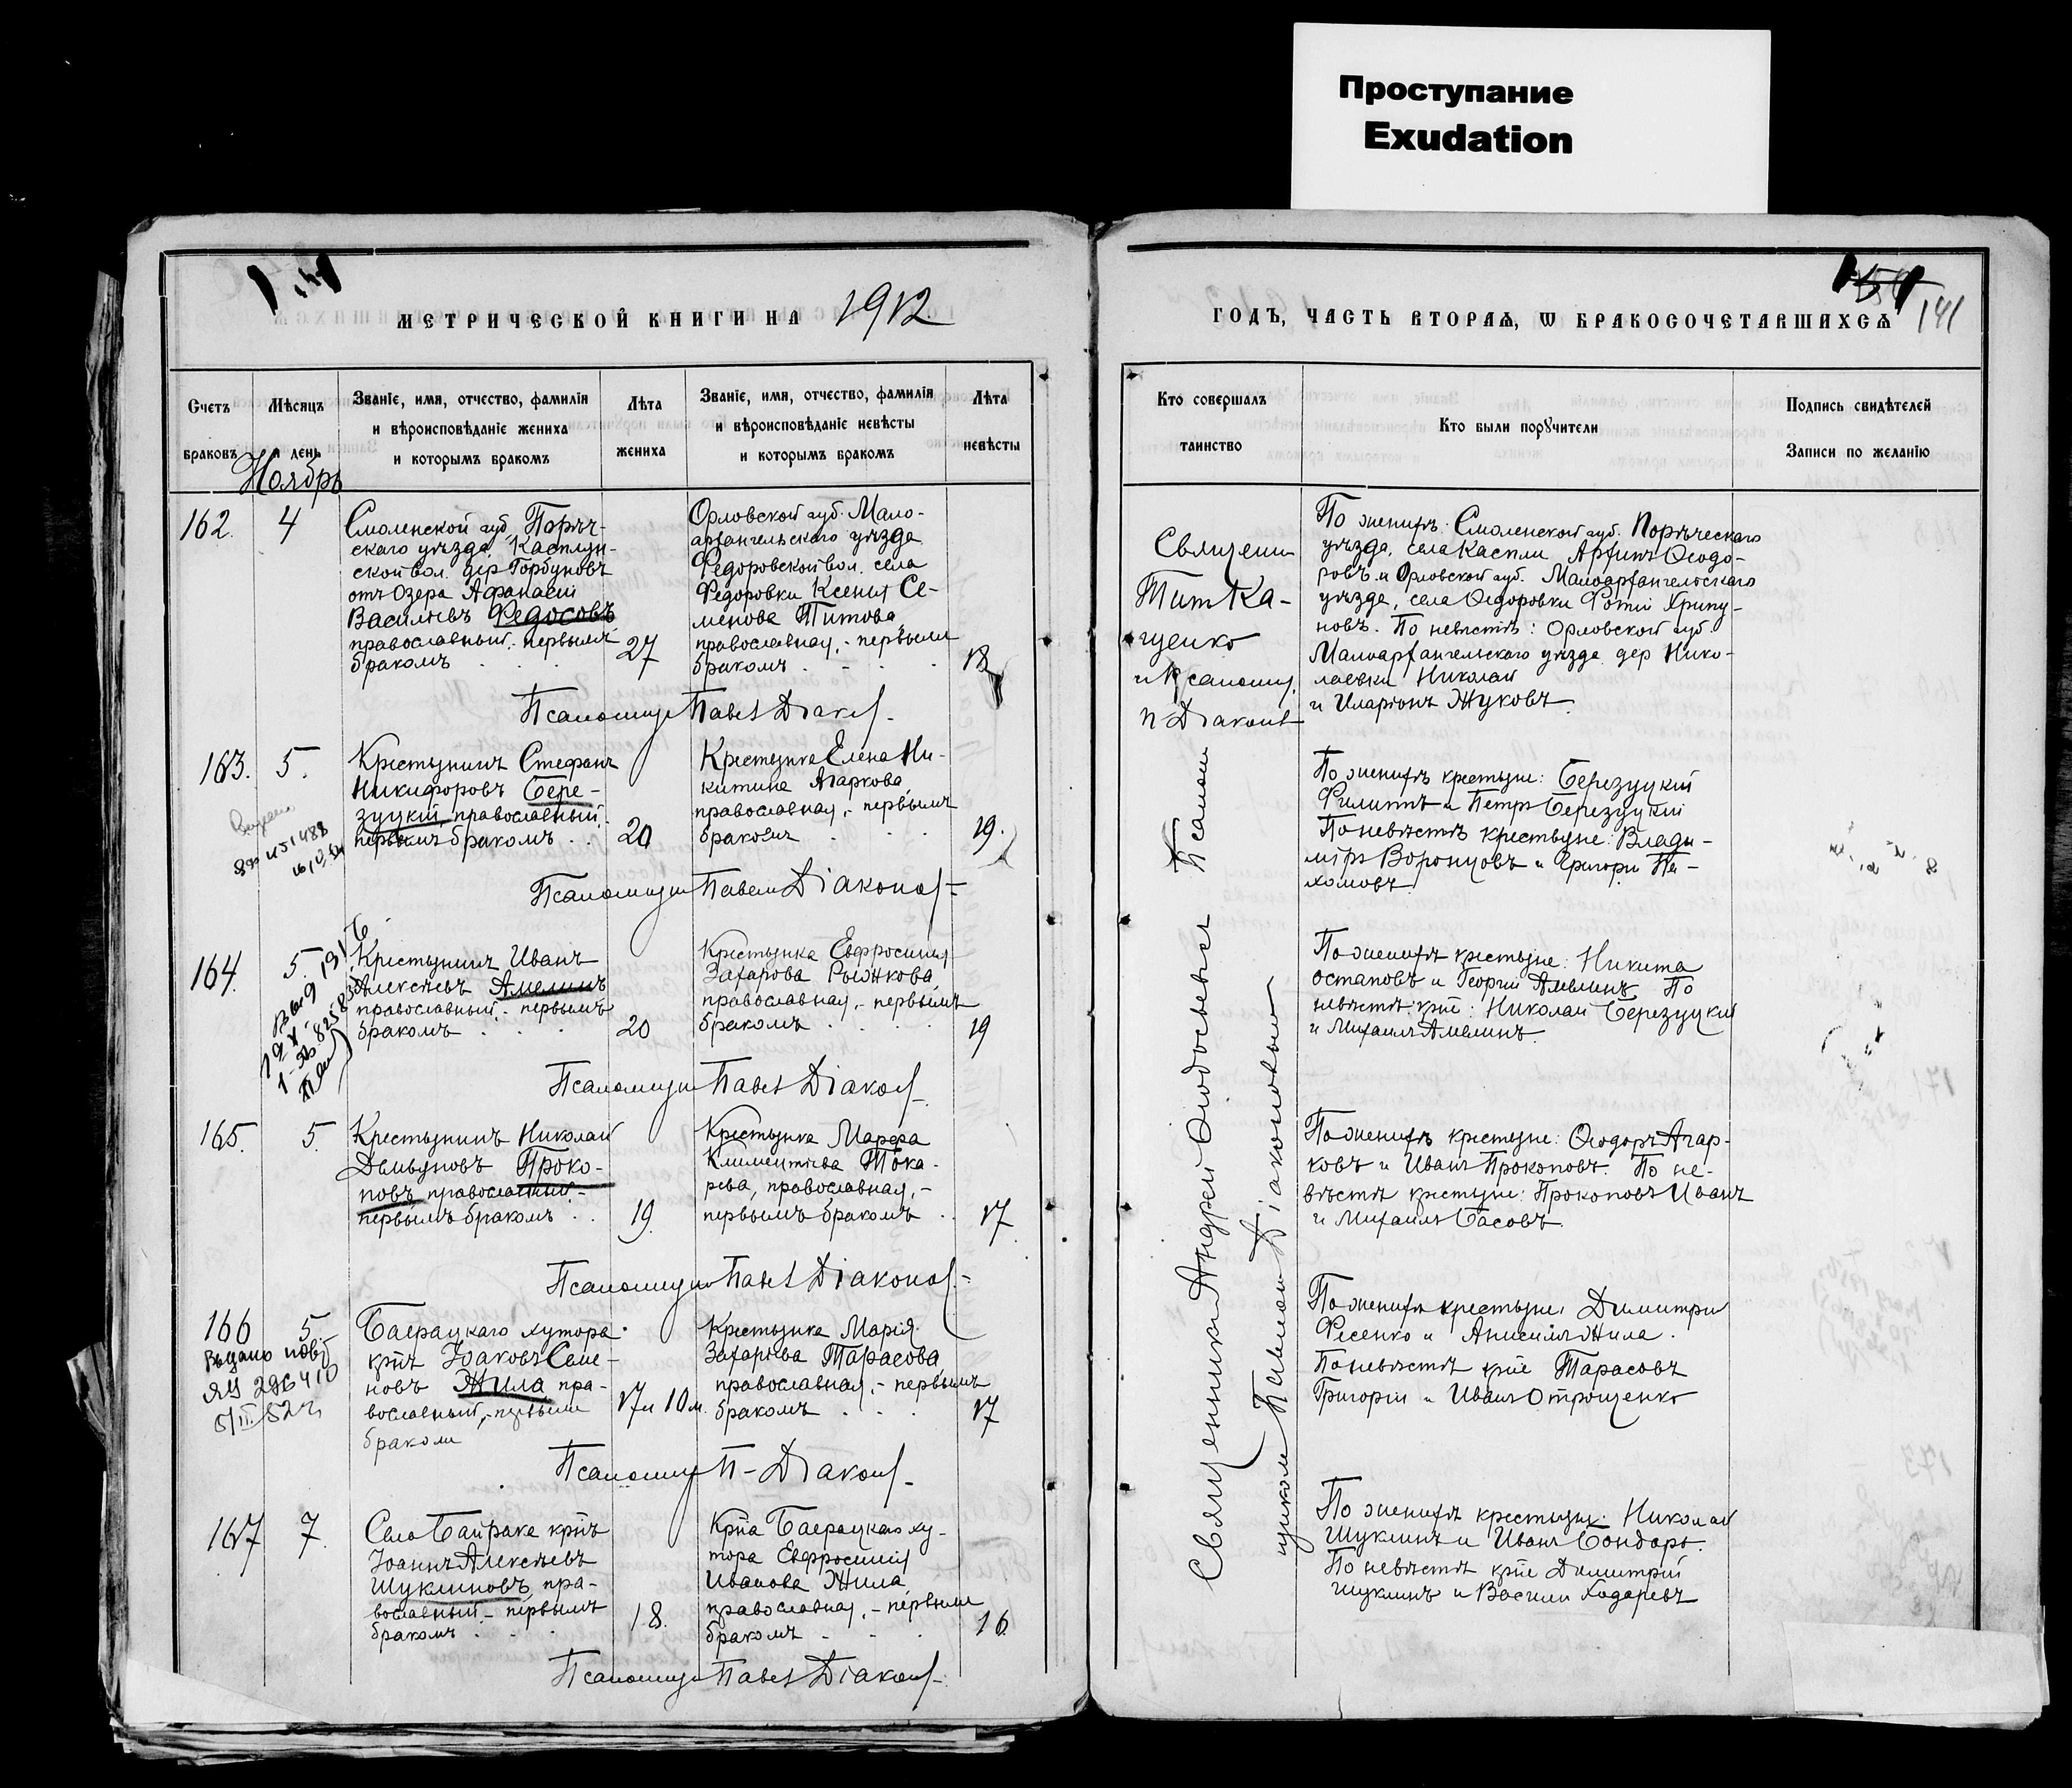 Проступание
Exudation
141
МЕТРИЧЕСКОЙ КНИГИ НА 1912
ГОДЪ, ЧАСТЬ ВТОРАѦ, Ѡ БРАКОСОЧЕТАВШИХСѦ
Счетъ
браковъ
Мѣсяцъ
и день
Званіе, имя, отчество, фамилія
и вѣроисповѣданіе жениха
и которымъ бракомъ
Лѣта
жениха
Званіе, имя, отчество, фамилія
и вѣроисповѣданіе невѣсты
и которымъ бракомъ
Лѣта
невѣсты
Кто совершалъ
таинство
Кто были порꙋчители
Подпись свидѣтелей
Записи по желанію
Ноябрь
162.
4
Смоленской губ. Порѣч-
скаго уѣзда, Касплян-
ской вол. дер Горбуновъ
отъ Озера Афанасій
Васильевъ Федосовъ,
православный,- первымъ
бракомъ
27
Орловской губ. Мало-
архангельскаго уѣзда
Федоровской вол. села
Федоровки Ксенія Се-
менова Титова,
православная,- первымъ
бракомъ
18
Псаломщ Павел Діакон
Священ
Тит Ка-
щенко
и Псаломщ.
П Діаконов
По женихѣ: Смоленской губ. Порѣческаго
уѣзда, села Каспли Архипъ Ѳеодо-
ровъ и Орловской губ. Малоархангельскаго
уѣзда, села Ѳедоровки Фотій Хрипу-
новъ. По невѣстѣ: Орловской губ.
Малоархангельскаго уѣзда дер Нико-
лаевки Николай
и Иларіонъ Жуковъ.
163.
5.
Крестьянинъ Стефанъ
Никифоровъ Бере-
зуцкій, православный,
первымъ бракомъ
20
Крестьянка Елена Ни-
китина Агаркова,
православная,- первымъ
бракомъ
19.
Псаломщик Павел Діаконов
По женихѣ крестьяне: Березуцкій
Филиппъ и Петръ Березуцкій
По невѣстѣ крестьяне: Влади-
міръ Воронцовъ и Григорій Па-
хомовъ
164.
5.
Крестьянинъ Иванъ
Алексѣевъ Амелинъ,
православный,- первымъ
бракомъ
20
Крестьянка Евфросинія
Захарова Рыжкова,
православная,- первымъ
бракомъ
19
Псаломщик Павел Діакон
По женихѣ крестьяне: Никита
Остаповъ и Георгій Амелинъ. По
невѣстѣ: крне: Николай Березуцкій
и Михаилъ Амелинъ.
165.
5.
Крестьянинъ Николай
Демьяновъ Проко-
повъ, православный,-
первымъ бракомъ
19.
Крестьянка Марфа
Климентіева Тока-
рева, православная,-
первымъ бракомъ
17.
Псаломщик Павел Діаконов
По женихѣ крестьяне: Ѳеодоръ Агар-
ковъ и Иванъ Прокоповъ. По не-
вѣстѣ крестьяне: Прокоповъ Иванъ
и Михаилъ Басовъ
166
5.
Выдано повт
ЯУ 296410
Баерацкаго хутора
крнъ Іоаковъ Семе-
новъ Жила, пра-
вославный,- первым
браком
17 и 10 м.
Крестьянка Марія
Захаріева Тарасова,
православная,- первымъ
бракомъ
17
Псаломщ П- Діакон
По женихѣ крестьяне: Димитрій
Фесенко и Анисимъ Жила.
По невѣстѣ крне Тарасовъ
Григорій и Иванъ Отрощенко
167
7.
Села Байрака крнъ
Іоаннъ Алексѣевъ
Шуклиновъ, пра-
вославный,- первымъ
бракомъ
18.
Крнка Баерацкаго ху-
тора Евфросинія
Иванова Жила,
православная,- первым
бракомъ
16
Псаломщик Павел Діакон
По женихѣ крестьяне: Николай
Шуклинъ и Иванъ Бондарь.
По невѣстѣ крне Димитрій
Шуклинъ и Василій Ходаревъ
Священникъ Андрей Ѳеодосьевъ Псалом
щиком Павлом Діаконовым